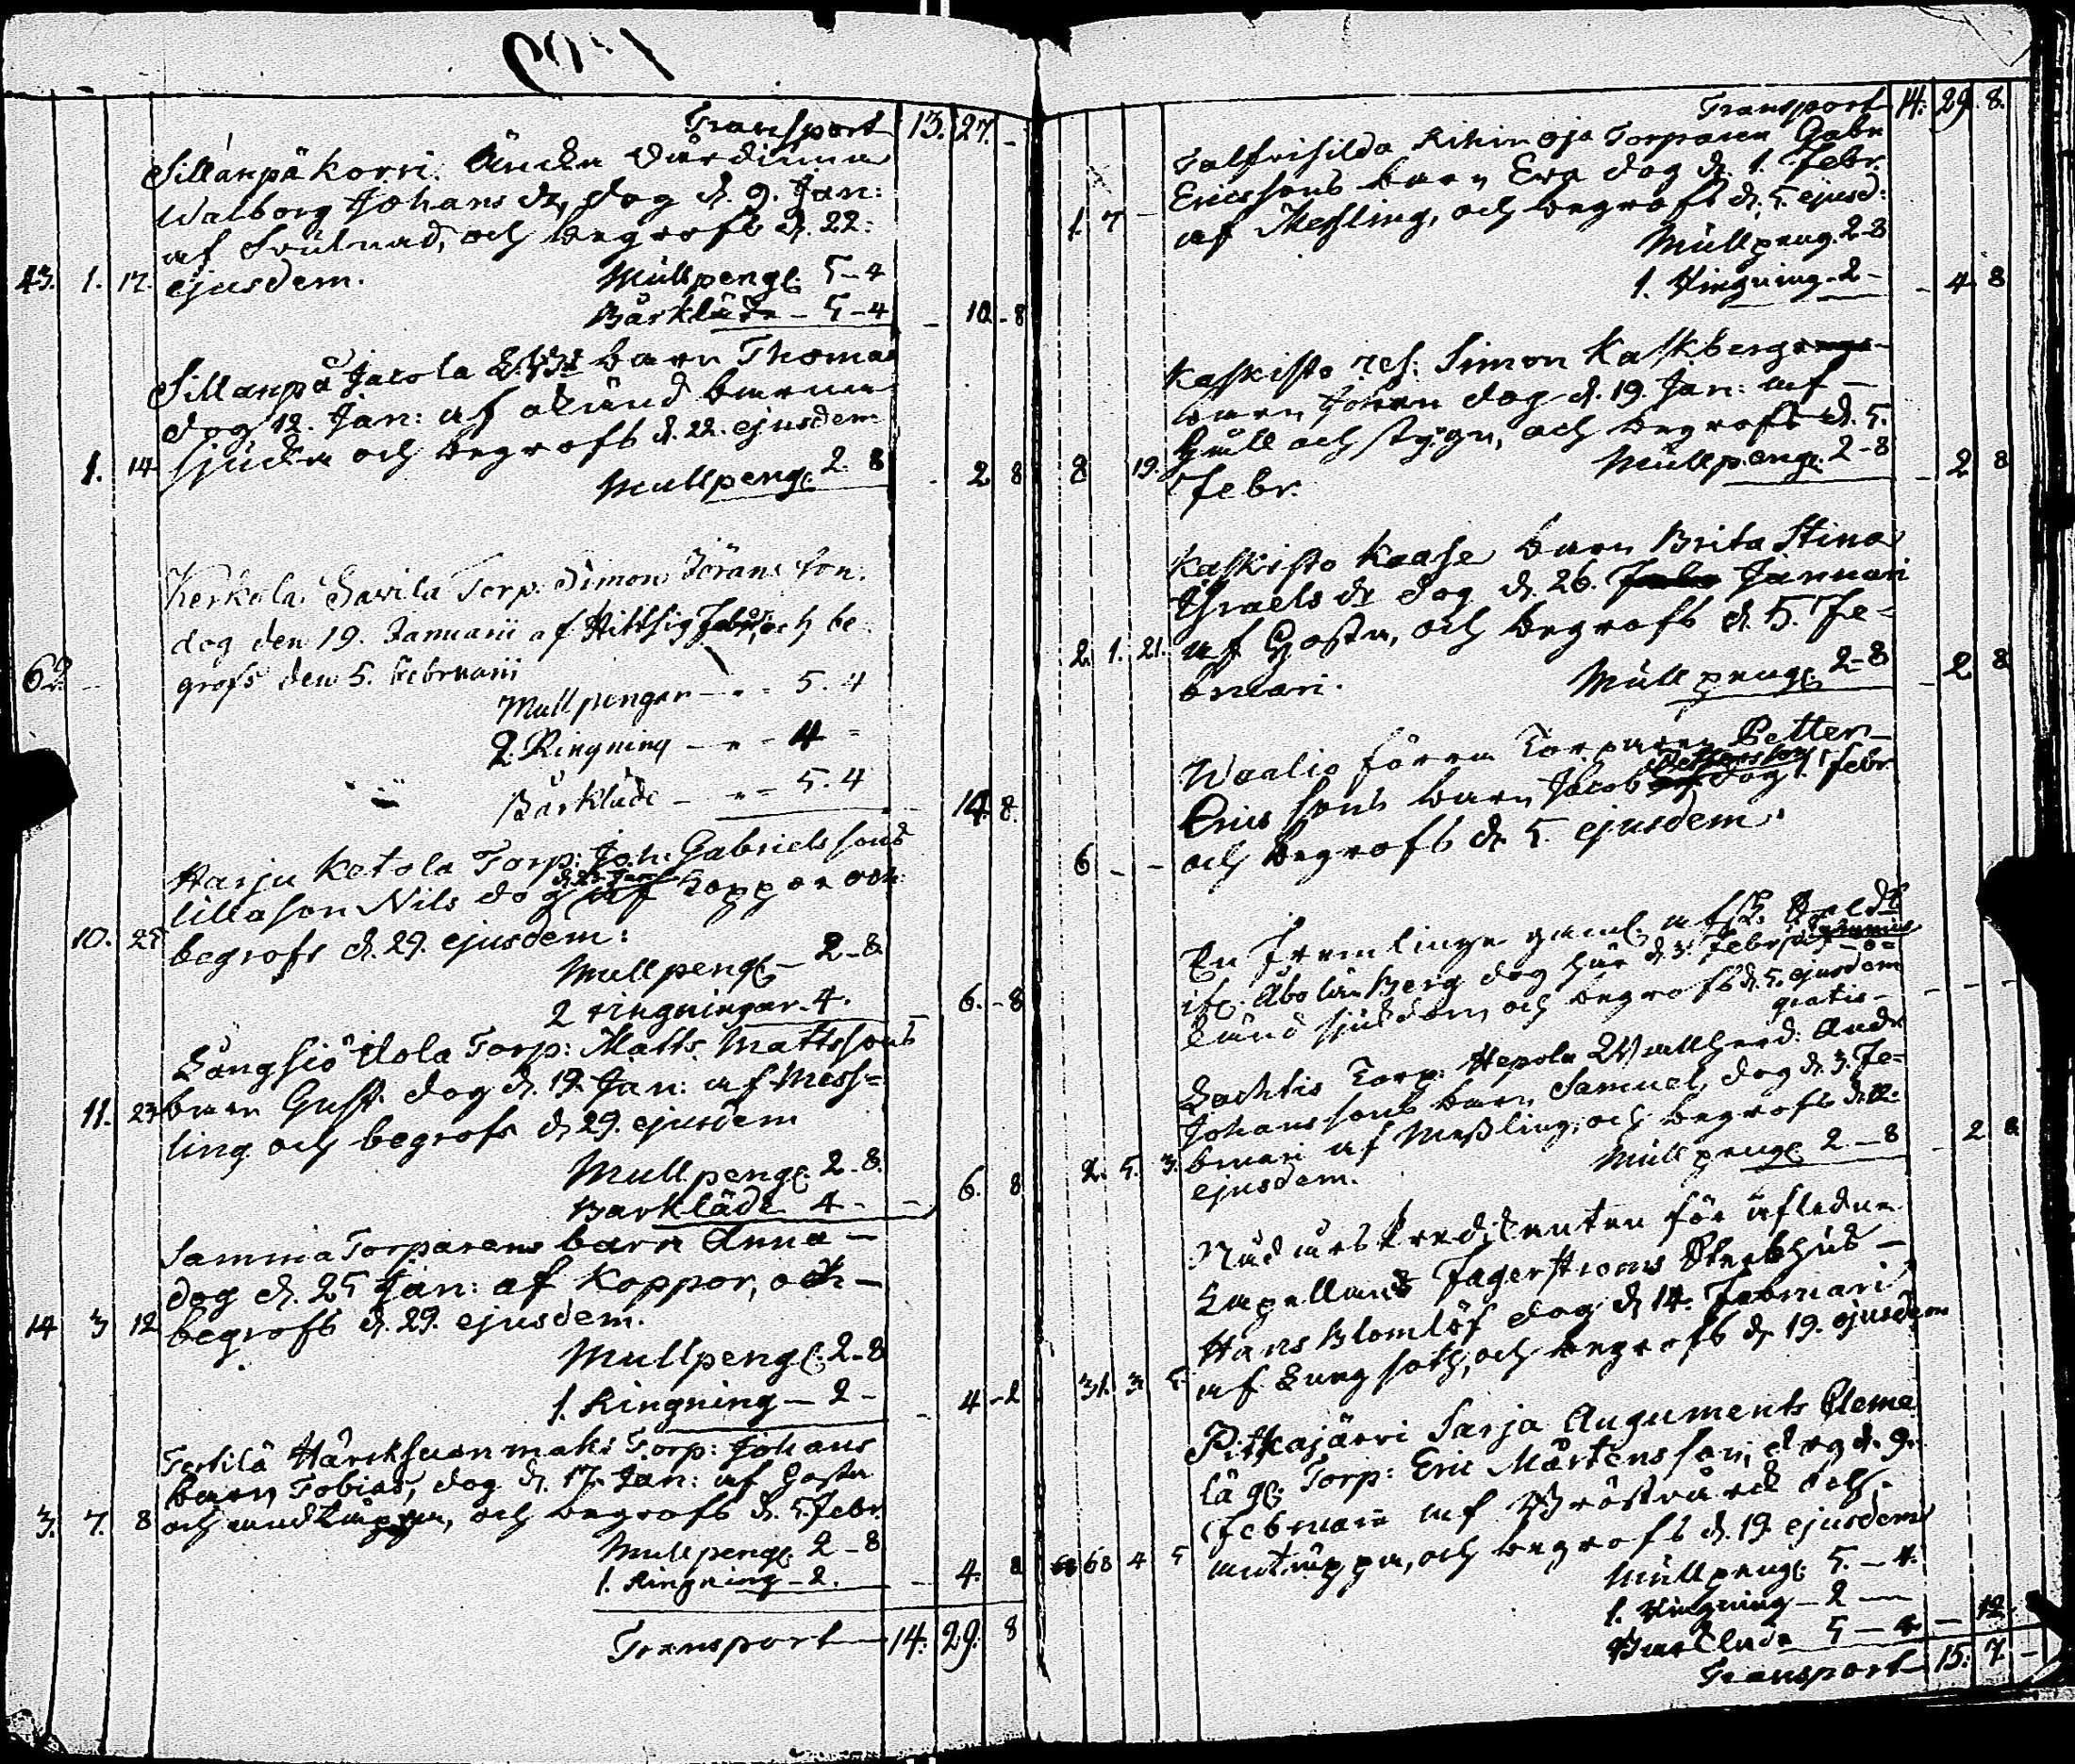 Transport 13. 27. -
Sillanpä Korri. Änckn Värdinna
Walborg Johans dr, dog d. 9. Jan:
af Svulnad, och begrofs d. 22:
43. 1. 17. ejusdem. Mullpeng. 5-4
Bårkläde - 5-4 - 10 - 8
Sillanpä Jacola barn Thomas
dog 12. Jan: af okänd barna
1. 14 sjuka och begrofs d. 22. ejusdem
Mullpeng. 2. 8 - 2 8
Kerkola Savila Torp. Simon Jörans son.
dog den 19. Januarii af Hittsig feber, och be
62. - grofs den 5. Februarii
Mullpengar - " - 5. 4
2. Ringning - " - 4 -
Bårkläde - " - 5. 4 - 14. 8.
Harju Katola Torp: Joh: Gabriels sons
lilla son Nils dog af Koppor och
10. 25 begrofs d. 29. ejusdem:
Mullpeng - 2-8
2 ringningar. 4. - 6. - 8
Långsiö Uola Torp: Matts Mattssons
11. 23 barn Gust. dog d. 19. Jan: af Mess-
ling och begrofs d. 29. ejusdem
Mullpeng. 2-8.
Barkläde 4 - - 6. 8
Samma Torparens barn Anna -
dog d. 25 Jan: af Koppor, och -
14 3 12 begrofs d. 29. ejusdem.
Mullpeng. 2-8
1. Ringning - 2 - - 4 - 2
Torp: Johans
barn Tobias, dog d. 17. Jan: af Hosta
3. 7. 8 och andtäppa, och begrofs d. 5. Febr.
Mullpeng. 2-8
1. Ringning - 2. - 4. 8
Transport 14. 29. 8
Transport 14. 29. 8.
Rihimoja Torparen Gabr
Ericssons barn Eva dog d. 1. Febr.
1. 7 - af Messling, och begrofs d. 5. ejusd:
Mullpeng. 2-8
1. Ringning - 2 - - 4 8
Kaskisto res: Simon Kaskbergs
barn Johan dog d. 19. Jan: af -
Håll och styng, och begrofs d. 5.
8 19. Febr. Mullpeng. 2-8 - 2 8
Kaskisto Kaase barn Brita Stina
Israels dr dog d. 26. Januari
2. 1. 21. af Hosta, och begrofs d. 5. Fe-
bruari. Mullpeng. 2-8 - 2 8
Waalio förra Torparen Petter
Erics sons barn Jacob dog 1. Febr
6 - - och begrofs d. 5. ejusdem.
En främlinge gaml. afsk.
Åbo län Berg dog här d. 3. Febr.
känd sjukdom, och begrofs d. 5. ejusdem
gratis - - - -
Lachtis Torp: Hepola Wallherd: Andr
Johanssons barn Samuel, dog d. 3. Fe-
bruari af Messling, och begrofs d. 12.
2. 5. 3. ejusdem. Mullpeng. 2-8 - 2 8
Nådårs Predikanten för afledne
Capellans Fagerströms Sterbhus -
Hans Blomlöf dog d. 14. Februari
31. 3 5. af Lungsot, och begrofs d. 19. ejusdem
Pitkajärvi Sarja Auguments
Torp: Eric Mårtensson, dog d. 9.
Februari af Bröstvärck och
68 4 5 andtäppa, och begrofs d. 19. ejusdem
Mullpeng. 5. - 4.
1. Ringning - 2 -
Barkläde 5 - 4 - 12.
Transport 15. 7. -